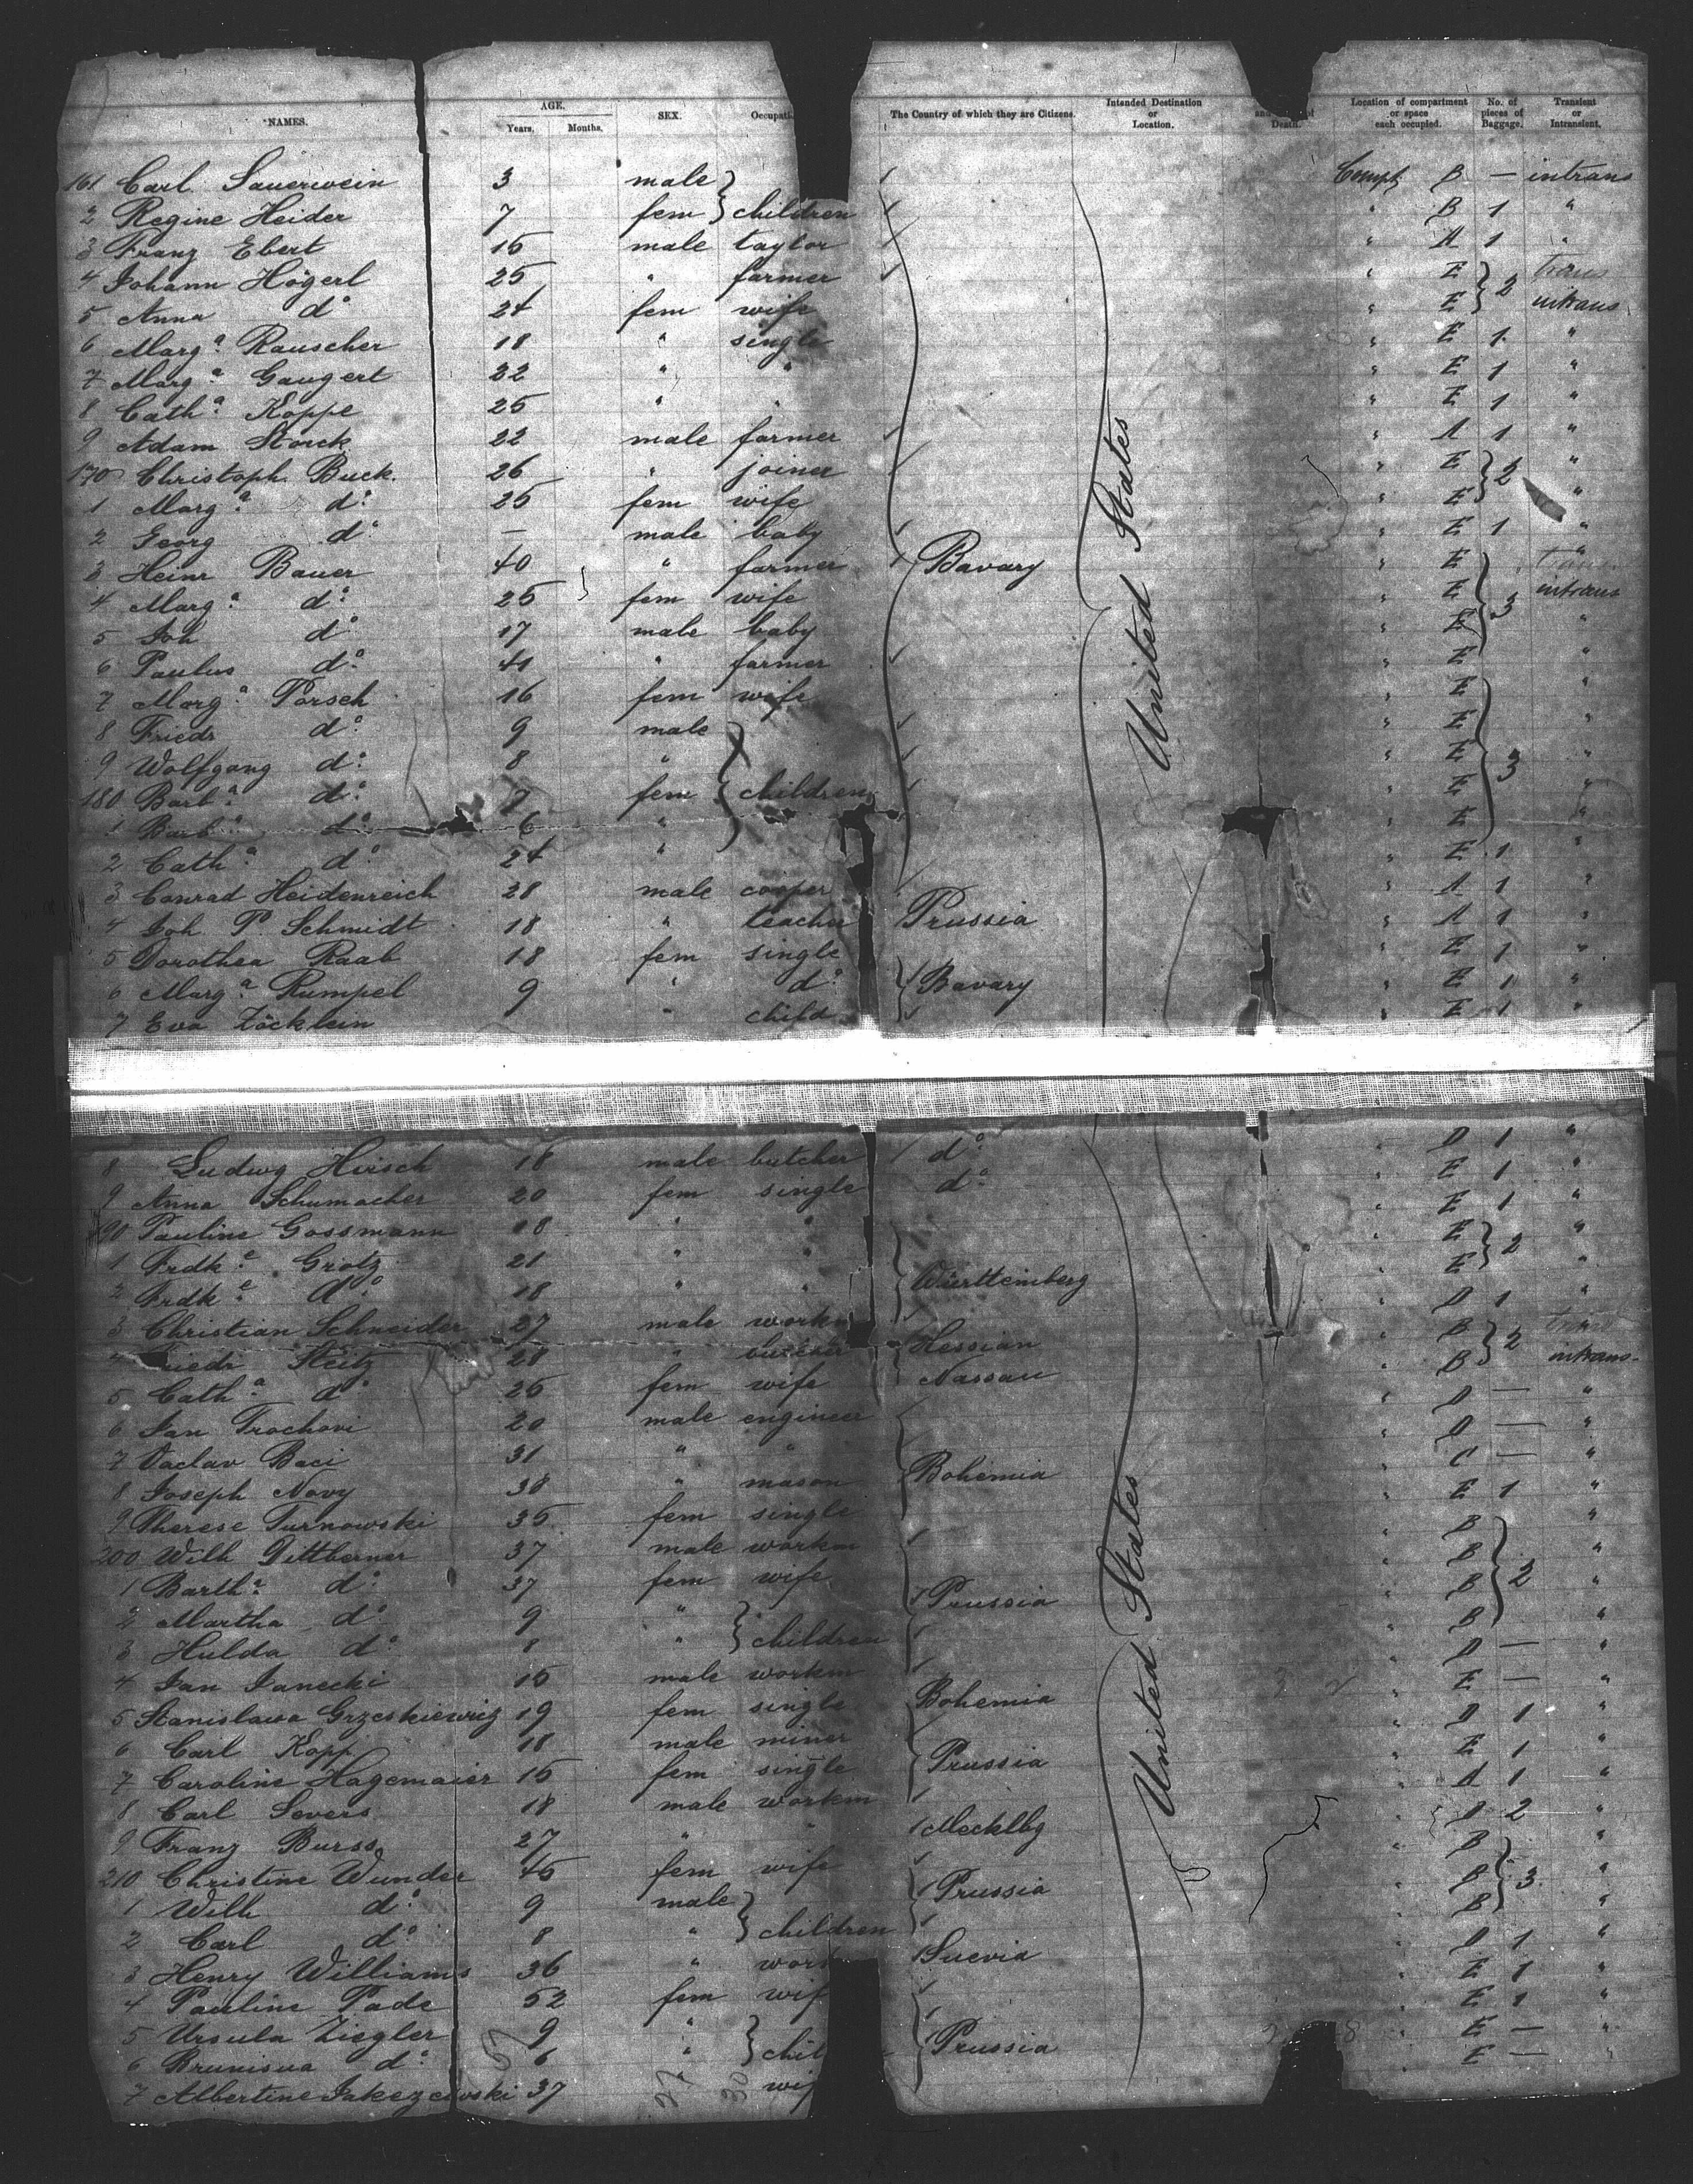 NAMES. AGE. Years. Months. SEX. Occupati The Country of which they are Citizens. Intended Destination or Location. and of Death. Location of compartment or space each occupied. No. of pieces of Baggage. Transient or Intransient.
161 Carl Sauerwein 3 male Compt B — intrans
2 Regine Heider 7 fem } children " B 1 "
3 Franz Ebert 15 male taylor " A 1 "
4 Johann Högerl 25 " farmer " E } 2 trans
5 Anna do 24 fem wife " E intrans
6 Marga Rauscher 18 " single " E 1 "
7 Marga Gaugert 22 " " " E 1 "
8 Catha Koppe 25 " " " E 1 "
9 Adam Storck 22 male farmer " A 1 "
170 Christoph Buck. 26 " joiner " E } 2 "
1 Marga do 25 fem wife " E "
2 Georg do — male baby " E 1 "
3 Heinr Bauer 40 " farmer Bavary United States " E trans
4 Marga do 25 fem wife " E } 3 intrans
5 Joh do 17 male baby " E "
6 Paulus do 41 " farmer " E "
7 Marga Porsch 16 fem wife " E "
8 Friedr do 9 male " E "
9 Wolfgang do 8 " " E } 3 "
180 Barba do 7 fem } children " E "
1 Barba do 6 " " E "
2 Catha do 24 " " E 1 "
3 Conrad Heidenreich 28 male cooper " A 1 "
4 Joh P Schmidt 18 " teacher Prussia " A 1 "
5 Dorothea Raab 18 fem single " E 1 "
6 Marga Rumpel 9 " do Bavary " E 1 "
7 Eva Zöcklein " child " E 1 "
8 Ludwg Hirsch 18 male butcher do " D 1 "
9 Anna Schumacher 20 fem single do " E 1 "
190 Pauline Gossmann 18 " " " E 1 "
1 Frdke Grötz 21 " " " E } 2 "
2 Frdke do 18 " " Württemberg " E "
3 Christian Schneider 27 male workm " D 1 "
4 Friedr Steitz 28 " butcher Hessian " B } 2 trans
5 Catha do 25 fem wife Nassau " B intrans.
6 Jan Trochovi 20 male engineer " D — "
7 Vaclav Baci 31 " " " D — "
8 Joseph Novy 38 " mason Bohemia " C — "
9 Therese Turnowski 35 fem single " E 1 "
200 Wilh Dittberner 37 male workm " B "
1 Bartha do 37 fem wife Prussia " B } 2 "
2 Martha do 9 " " B "
3 Hulda do 8 " } children " B "
4 Jan Janecki 15 male workm " D — "
5 Stanislawa Grzeskiewicz 19 fem single Bohemia United States " E — "
6 Carl Kopp 18 male miner " D 1 "
7 Caroline Hagemaier 15 fem single Prussia " E 1 "
8 Carl Severs 18 male workm " A 1 "
9 Franz Burss 27 " " Mecklbg " D 2 "
210 Christine Wunder 45 fem wife " B "
1 Wilh do 9 male Prussia " B } 3. "
2 Carl do 8 " } children " B "
3 Henry Williams 36 " work Suevia " D 1 "
4 Pauline Pade 52 fem wif " E 1 "
5 Ursula Ziegler 9 " " E 1 "
6 Brunisva do 6 " } chil Prussia " E — "
7 Albertine Jakezcewski 37 wif " E — "